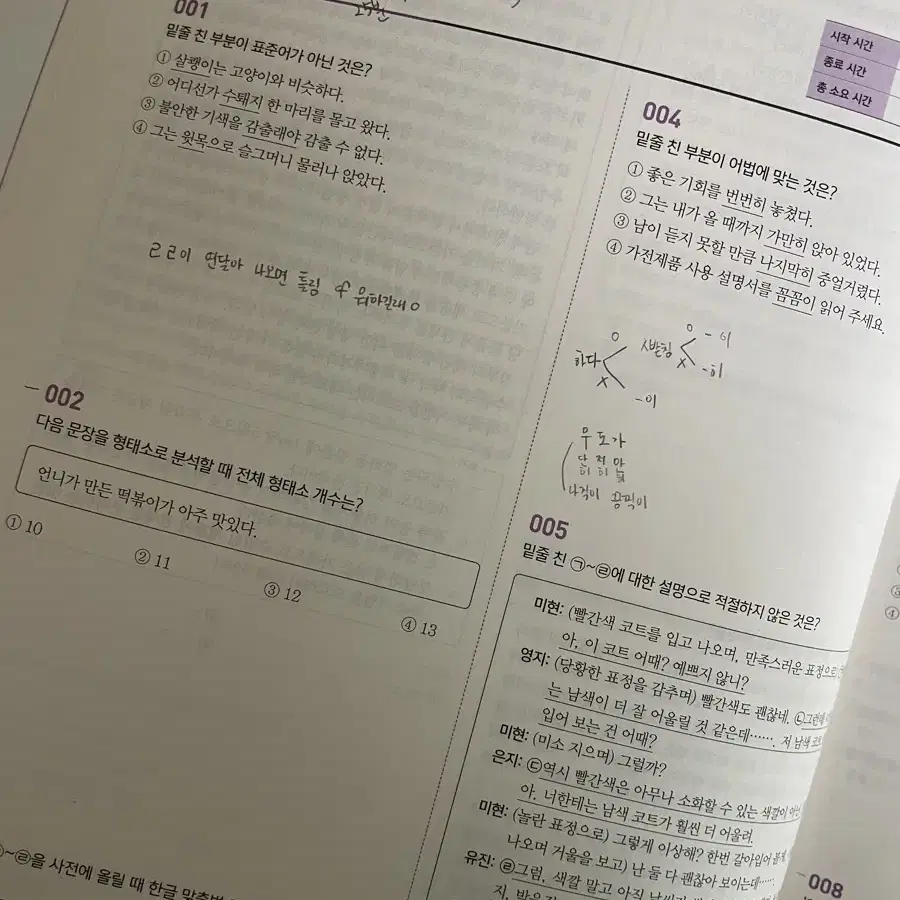 001
밑줄 친 부분이 표준어가 아닌 것은?
① 살쾡이는 고양이와 비슷하다.
② 어디선가 수퇘지 한 마리를 몰고 왔다.
③ 불안한 기색을 감출래야 감출 수 없다.
④ 그는 윗목으로 슬그머니 물러나 앉았다.
ㄹㄹ이 연달아 나오면 틀림
002
다음 문장을 형태소로 분석할 때 전체 형태소 개수는?
언니가 만든 떡볶이가 아주 맛있다.
① 10
② 11
③ 12
④ 13
을 사전에 올릴 때 한글
시작 시간
종료 시간
총 소요 시간
004
밑줄 친 부분이 어법에 맞는 것은?
① 좋은 기회를 번번히 놓쳤다.
② 그는 내가 올 때까지 가만히 앉아 있었다.
③ 남이 듣지 못할 만큼 나지막히 중얼거렸다.
④ 가전제품 사용 설명서를 꼼꼼이 읽어 주세요.
하다 O X
ㅅ받침 O -이
X -히
-이
005
밑줄 친 ㉠~㉣에 대한 설명으로 적절하지 않은 것은?
미현: (빨간색 코트를 입고 나오며, 만족스러운 표정으로
아, 이 코트 어때? 예쁘지 않니?
영지: (당황한 표정을 감추며) 빨간색도 괜찮네. ㉡그런데
는 남색이 더 잘 어울릴 것 같은데……. 저 남색 코트
입어 보는 건 어때?
미현: (미소 지으며) 그럴까?
은지: ㉢역시 빨간색은 아무나 소화할 수 있는 색깔이
아. 너한테는 남색 코트가 훨씬 더 어울려.
미현: (놀란 표정으로) 그렇게 이상해? 한번 갈아입어
나오며 거울을 보고) 난 둘 다 괜찮아 보이는데……
유진: ㉣그럼, 색깔 말고 아직
008